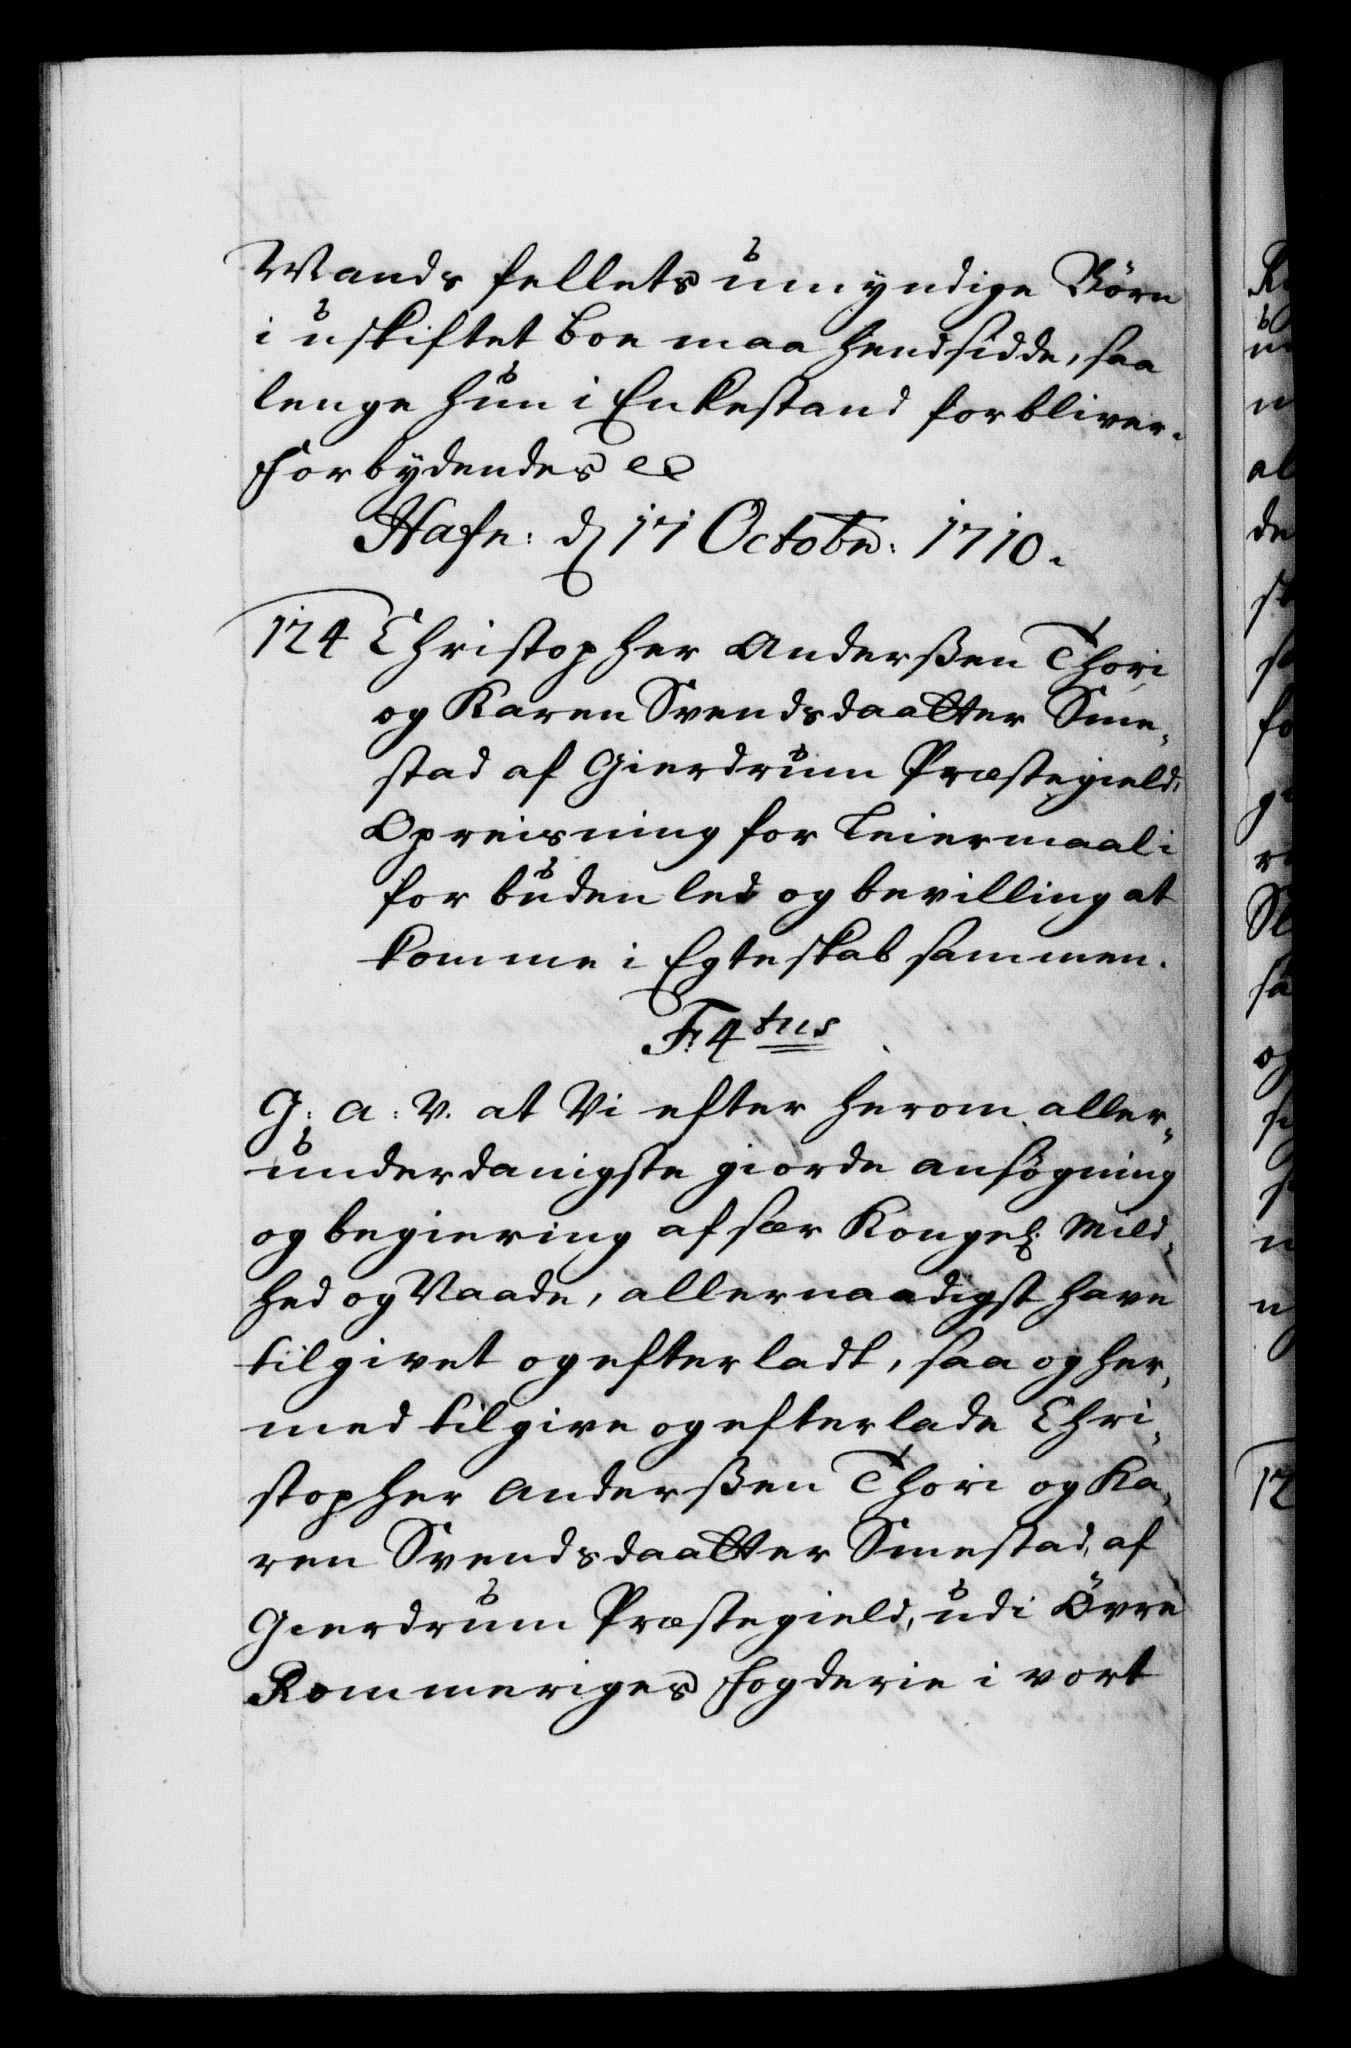 Mands fellets umyndige Börn
i uskiftet boe maa hensidde, saa
lenge hun i Enkestand forbliver.
Forbydendes etc
Hafn: d 17 Octobr: 1710.
124 Christopher Anderßen Thori
og Karen Svendsdaatter Sme„
stad af Gierdrum Præstegield,
Opreisning for Leiermaal i
forbuden led og bevilling at
komme i Egteskab sammen.
F: 4tus
G: A: V. at Vi efter herom aller„
underdanigste giorde ansøgning
og begiering af sær Kongel: Mild„
hed og Naade, allernaadigst have
tilgivet og efterladt, saa og her„
med tilgive og efterlade Chri„
stopher Anderßen Thori og Ka„
ren Svendsdaatter Smestad, af
Gierdrum Præstegield, udi Övre
Rommeriges Fogderie i vort